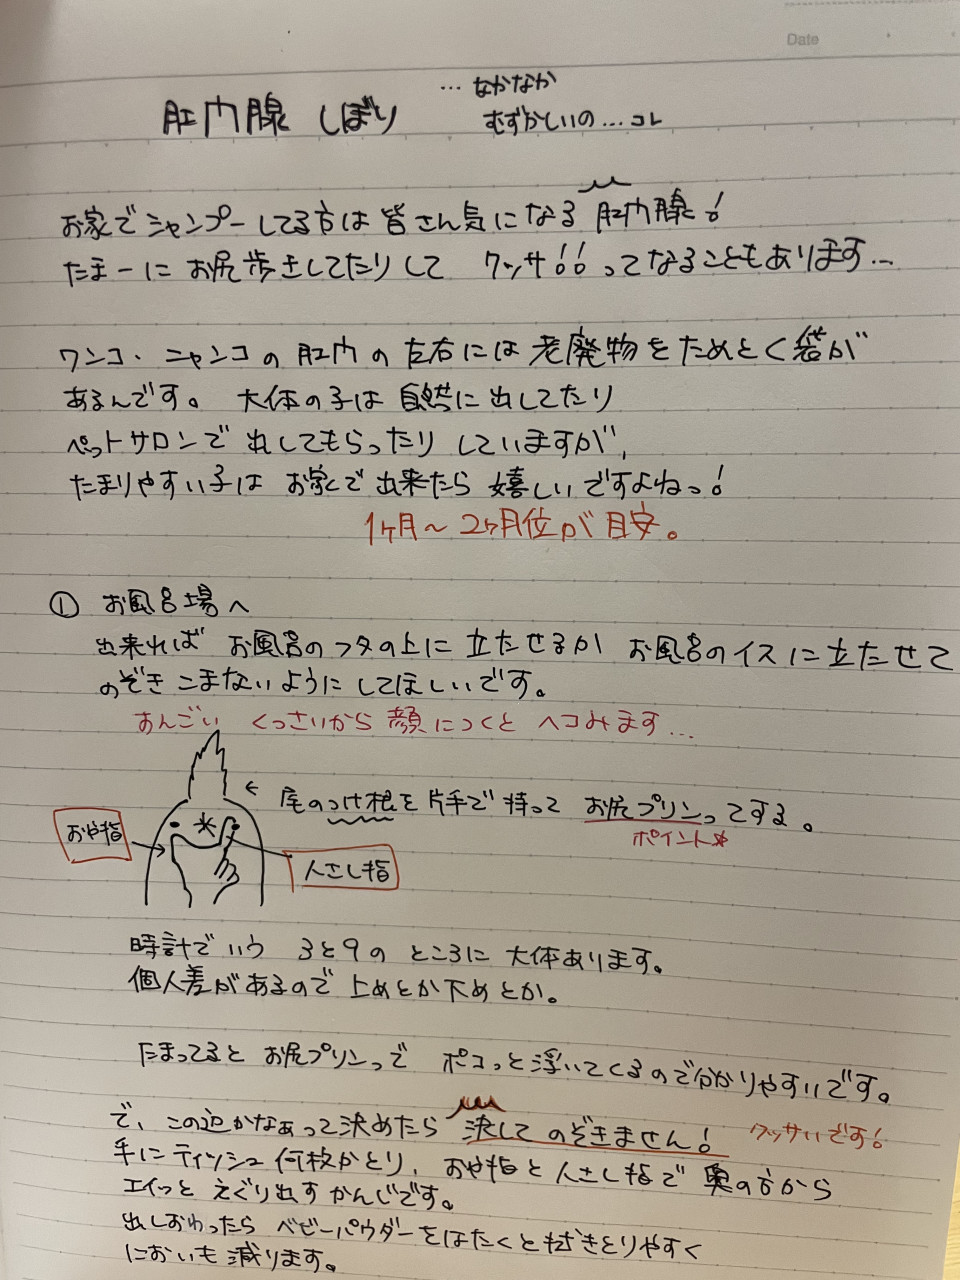 Date
肛門腺 しぼり
…なかなか
むずかしいの…コレ
お家でシャンプーしてる方は皆さん気になる肛門腺!
たまーにお尻歩きしてたりして クッサ!!ってなることもあります…
ワンコ、ニャンコの肛門の左右には老廃物をためとく袋が
あるんです。大体の子は自然に出してたり
ペットサロンで出してもらったりしていますが、
たまりやすい子はお家で出来たら嬉しいですよねっ!
1ヶ月〜2ヶ月位が目安。
① お風呂場へ
出来ればお風呂のフタの上に立たせるか お風呂のイスに立たせて
のぞきこまないようにしてほしいです。
すんごい くっさいから顔につくとヘコみます…
← 尾のつけ根を片手で持って お尻プリンってする。
ポイント☆
おや指
人さし指
時計でいう 3と9の ところに 大体あります。
個人差があるので上めとか下めとか。
たまってると お尻プリンっで ポコっと浮いてくるので分かりやすいです。
で、この辺かなぁって決めたら 決して のぞきません! クッサいです!
手にティッシュ何枚かとり、おや指と人さし指で奥の方から
エイっと えぐり出すかんじです。
出しおわったら ベビーパウダーをはたくとふきとりやすく
においも減ります。